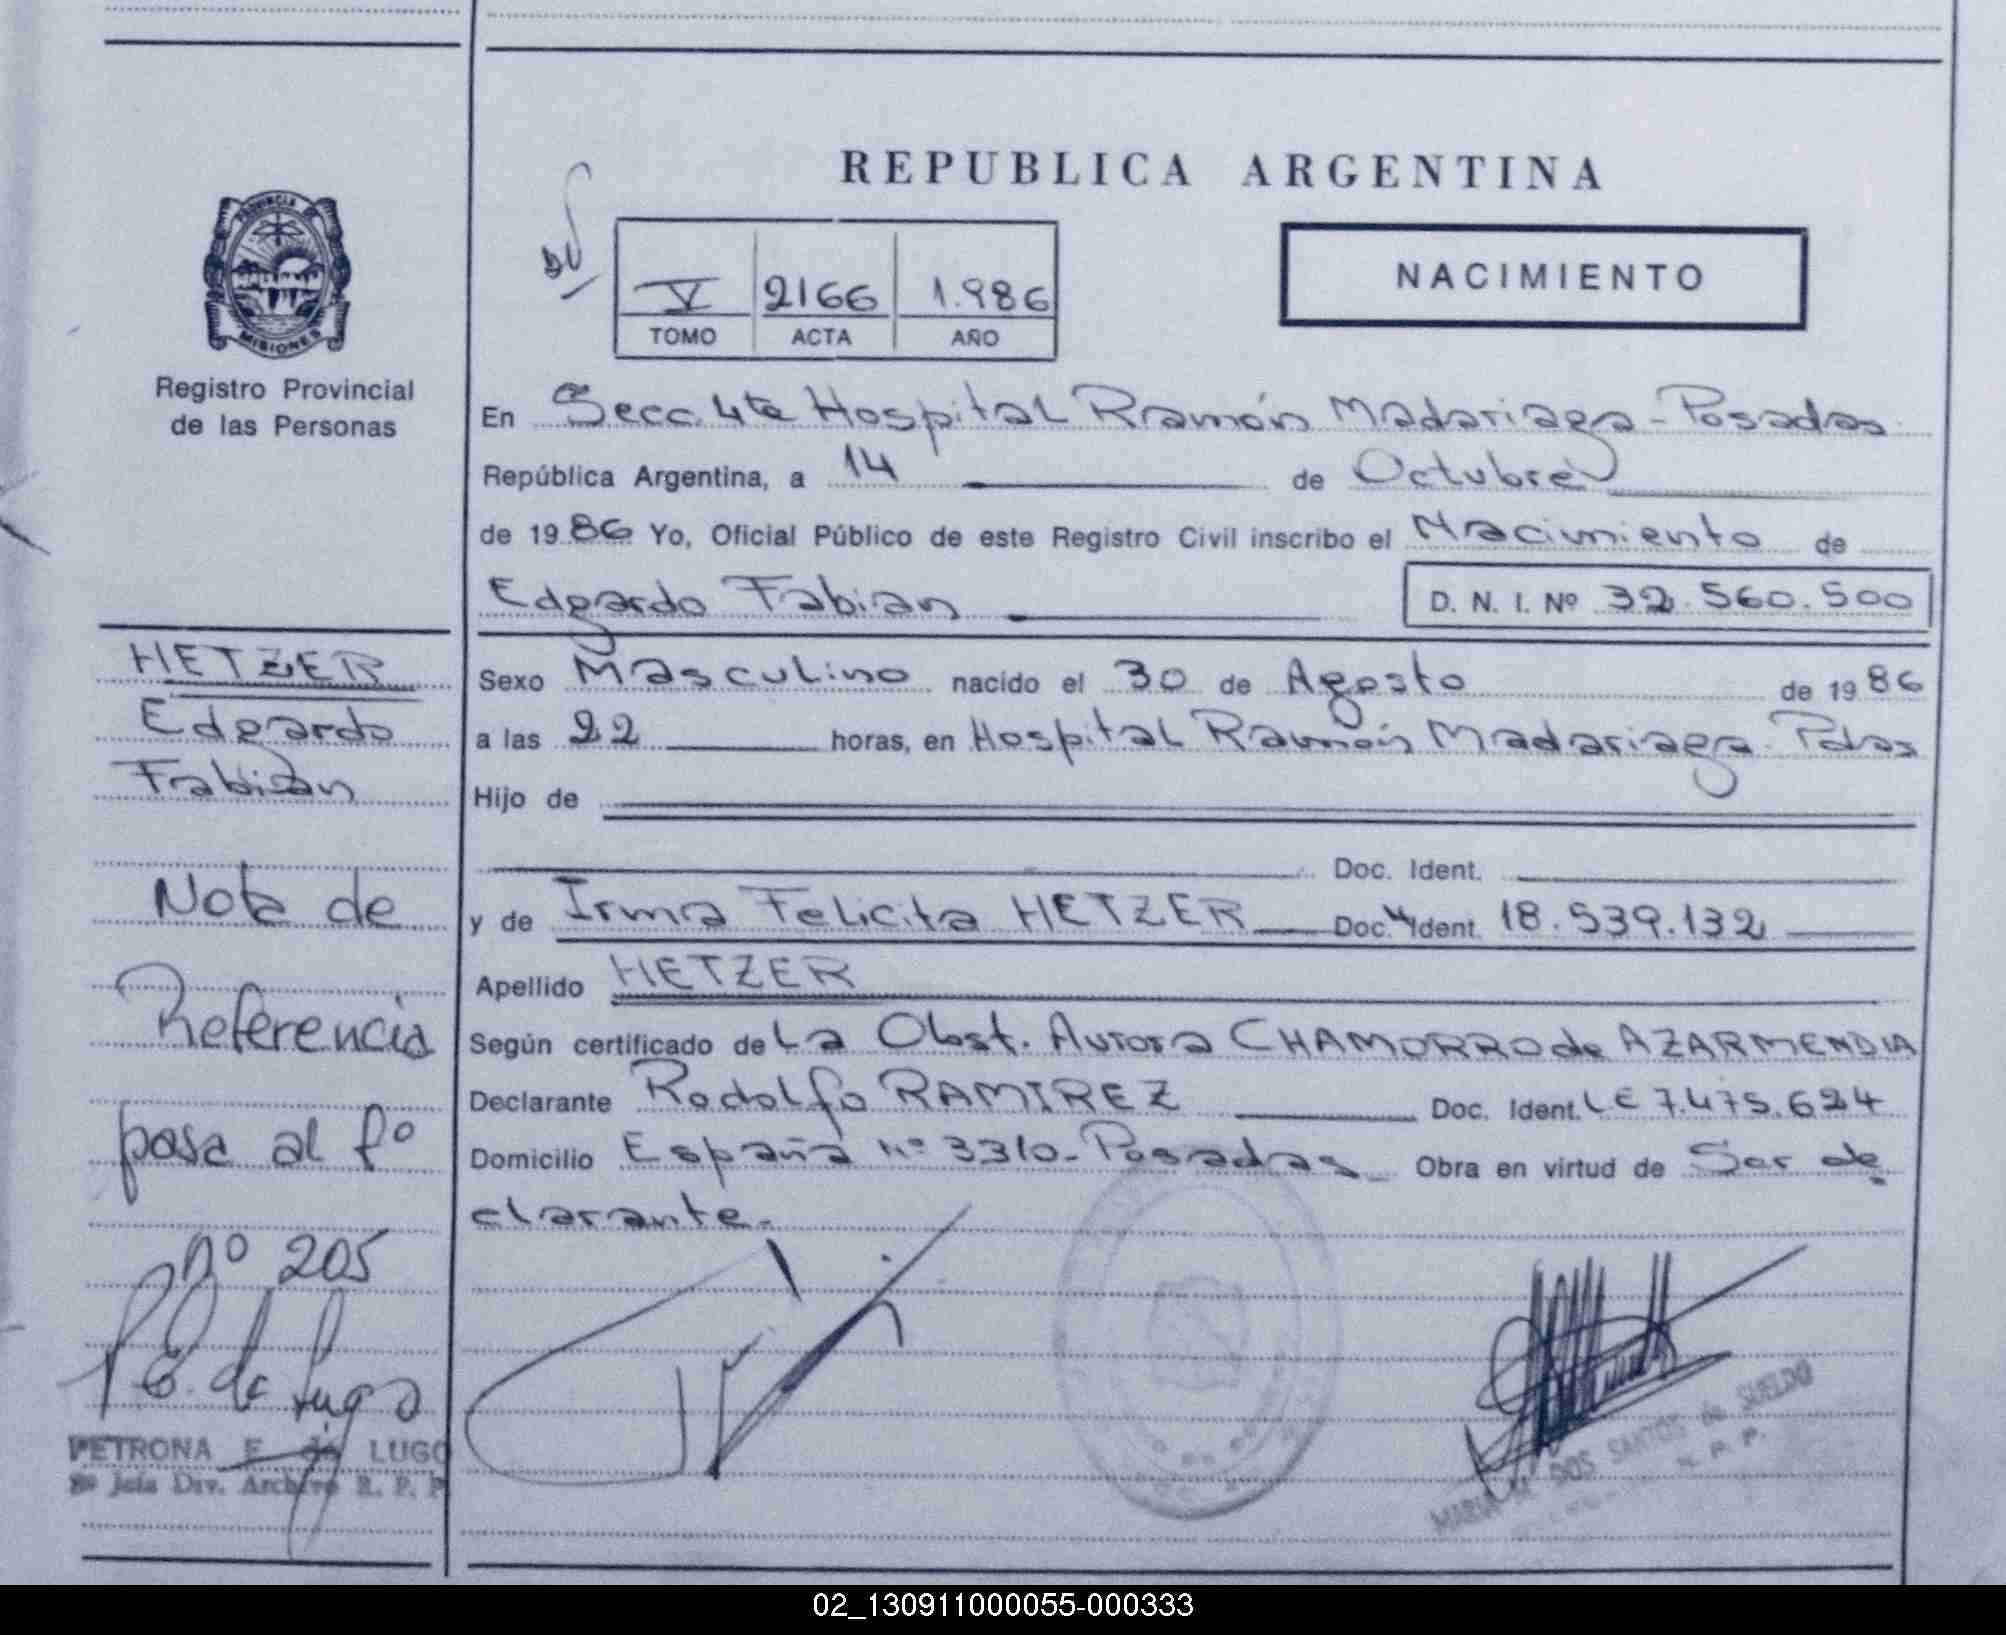 REPUBLICA ARGENTINA
NACIMIENTO
V 2166 1.986
TOMO ACTA AÑO
PROVINCIA DE
MISIONES
Registro Provincial
de las Personas
En Secc. 4ta Hospital Ramón Madariaga - Posadas
República Argentina, a 14 de Octubre
de 1986 Yo, Oficial Público de este Registro Civil inscribo el Nacimiento de
Edgardo Fabian
D. N. I. Nº 32.560.500
HETZER
Edgardo
Fabián
Sexo Masculino nacido el 30 de Agosto de 1986
a las 22 horas, en Hospital Ramón Madariaga - Pdas
Hijo de
Doc. Ident.
y de Irma Felicita HETZER Doc. Ident. 18.539.132
Apellido HETZER
Según certificado de La Obst. Aurora CHAMORRO de AZARMENDIA
Declarante Rodolfo RAMIREZ Doc. Ident. LE 7.475.624
Domicilio España Nº 3310 - Posadas Obra en virtud de Ser de
clarante.-
Nota de
Referencia
pasa al fº
nº 205
P E. de Lugo
PETRONA E. de LUGO
Jefa Div. Archivo R. P. P.
MARIA DOS SANTOS de SUELDO
R. P. P.
02_130911000055-000333